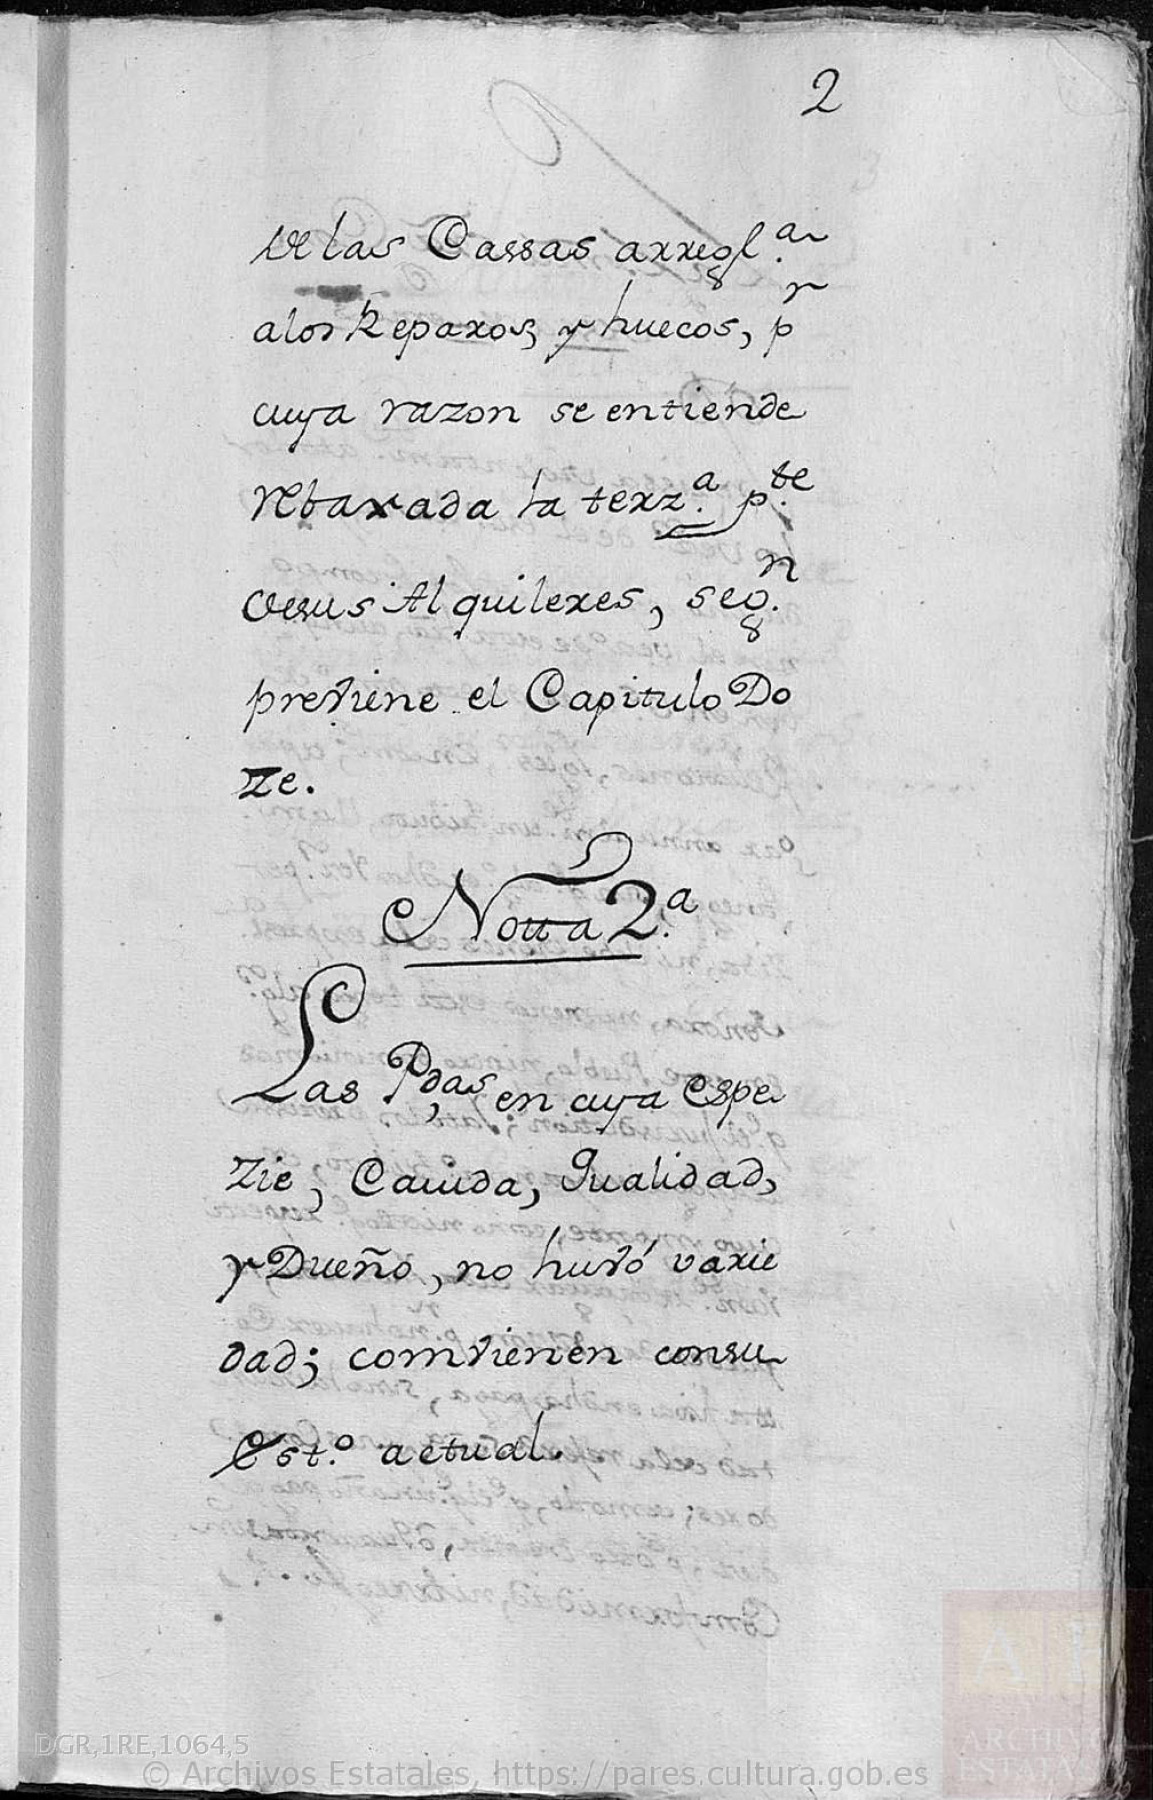 2
de las Cassas arregl.a
a los Reparos, y huecos, p.r
cuya razon se entiende
rebaxada la terz.a p.te
de sus Alquileres, seg.n
previene el Capitulo Do
ze.
Notta 2.a
Las P.das en cuya espe
zie, Cavida, Qualidad,
y Dueño, no huvó varie
dad; comvienen con su
est.o actual.
DGR,1RE,1064,5
© Archivos Estatales, https://pares.cultura.gob.es
ARCHIVOS
ESTATALES